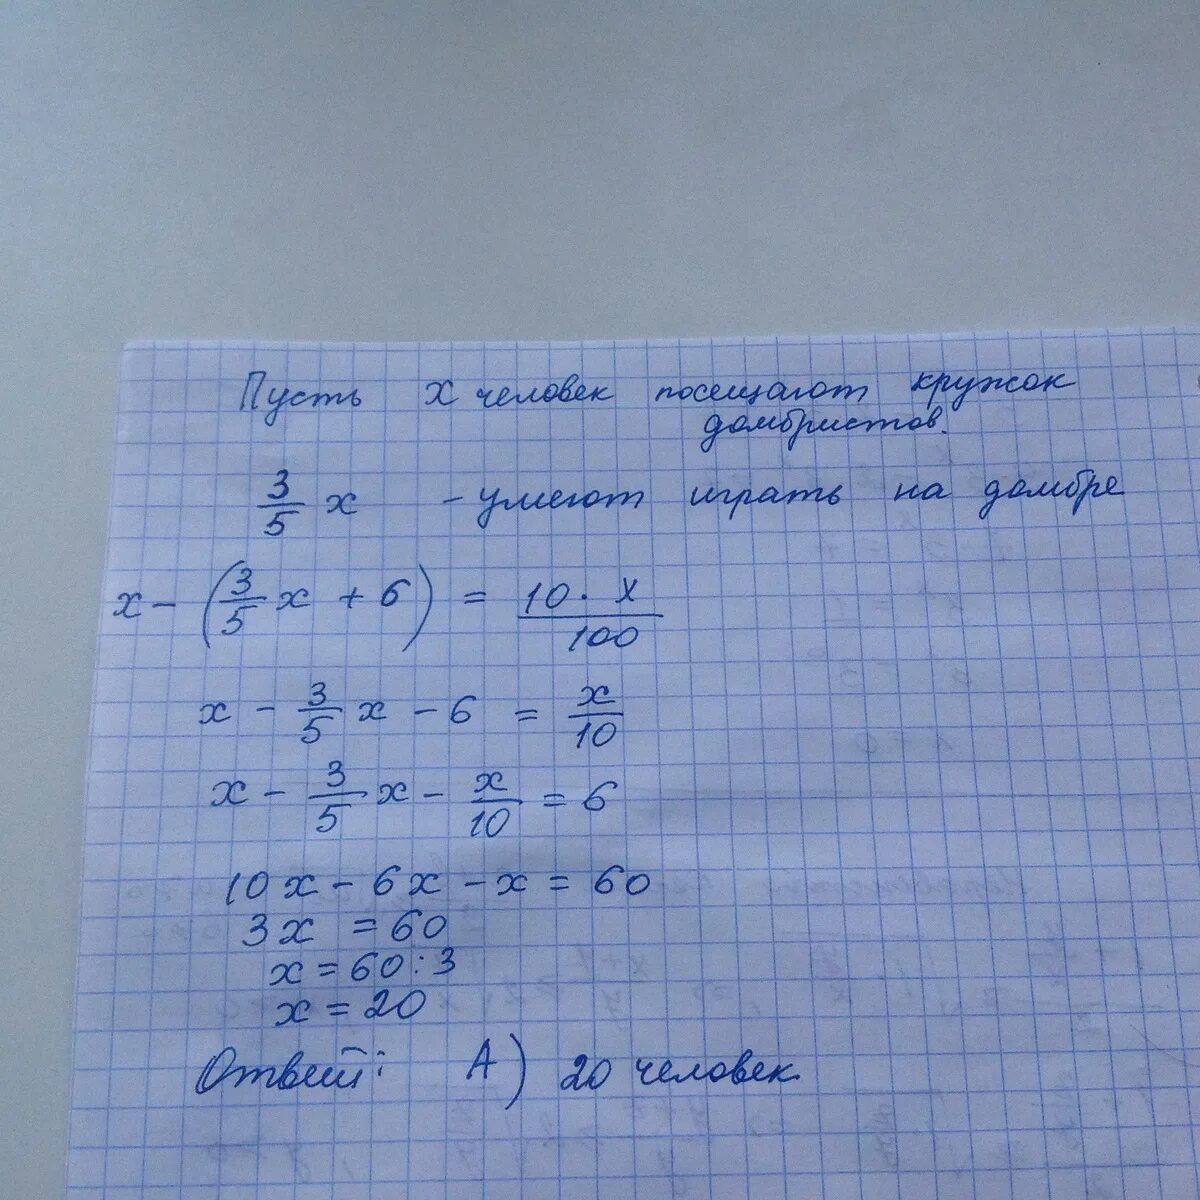 Пусть x человек посещают кружок
домбристов.
3/5 x - умеют играть на домбре
x - (3/5 x + 6) = 10 · x / 100
x - 3/5 x - 6 = x/10
x - 3/5 x - x/10 = 6
10x - 6x - x = 60
3x = 60
x = 60 : 3
x = 20
Ответ: А) 20 человек